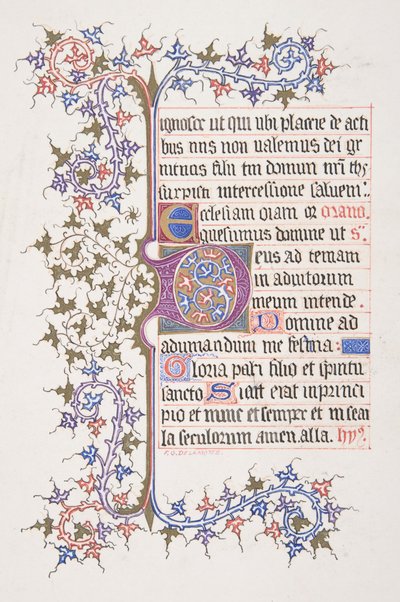 ignosce ut qui tibi placere de acti
bus nris non valemus dei gr
nri ihs
intercessione salvem
Ecclesiam qram or Orano.
quesumus domine ut s
Deus ad temam
in aditorum
meum intende.
Domine ad
adiumandum me festina:
Gloria patri filio et spiritu
sancto Sicut erat inprinci
pio et nunc et semper et in secu
la seculorum amen. alla. hys
F. G. DELAMOTTE.